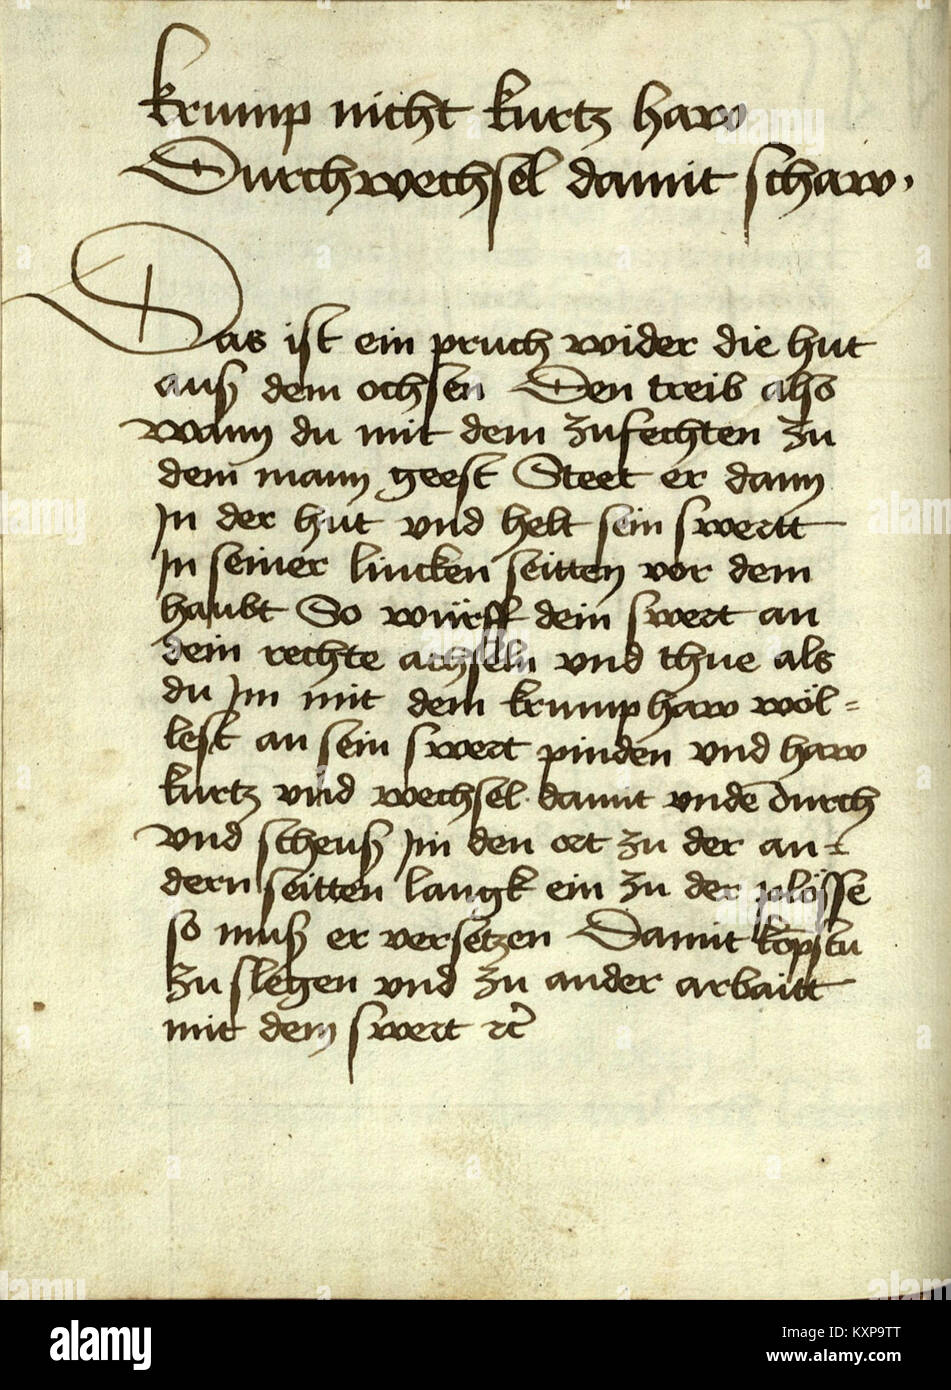 krump nicht kurtz haw
Durchwechsel damit schaw .
Das ist ein pruch wider die hut
auß dem ochsen Den treib also
wann du mit dem zufechten zu
dem mann geest Steet er dann
In der hut vnd helt sein swertt
In seiner lincken seitten vor dem
haubt So würff dein swert an
dein rechte achseln vnd thue als
du Im mit dem krumphaw wöl=
lest an sein swert pinden vnd haw
kurtz vnd wechsel damit vndē durch
vnd scheuß Im den ort zu der an=
dern seitten langk ein zu der plösse
so muß er versetzen Damit kōpstu
zu slegen vnd zu ander arbaitt
mit dem swert ⁊c̄
alamy
Image ID: KXP9TT
www.alamy.com